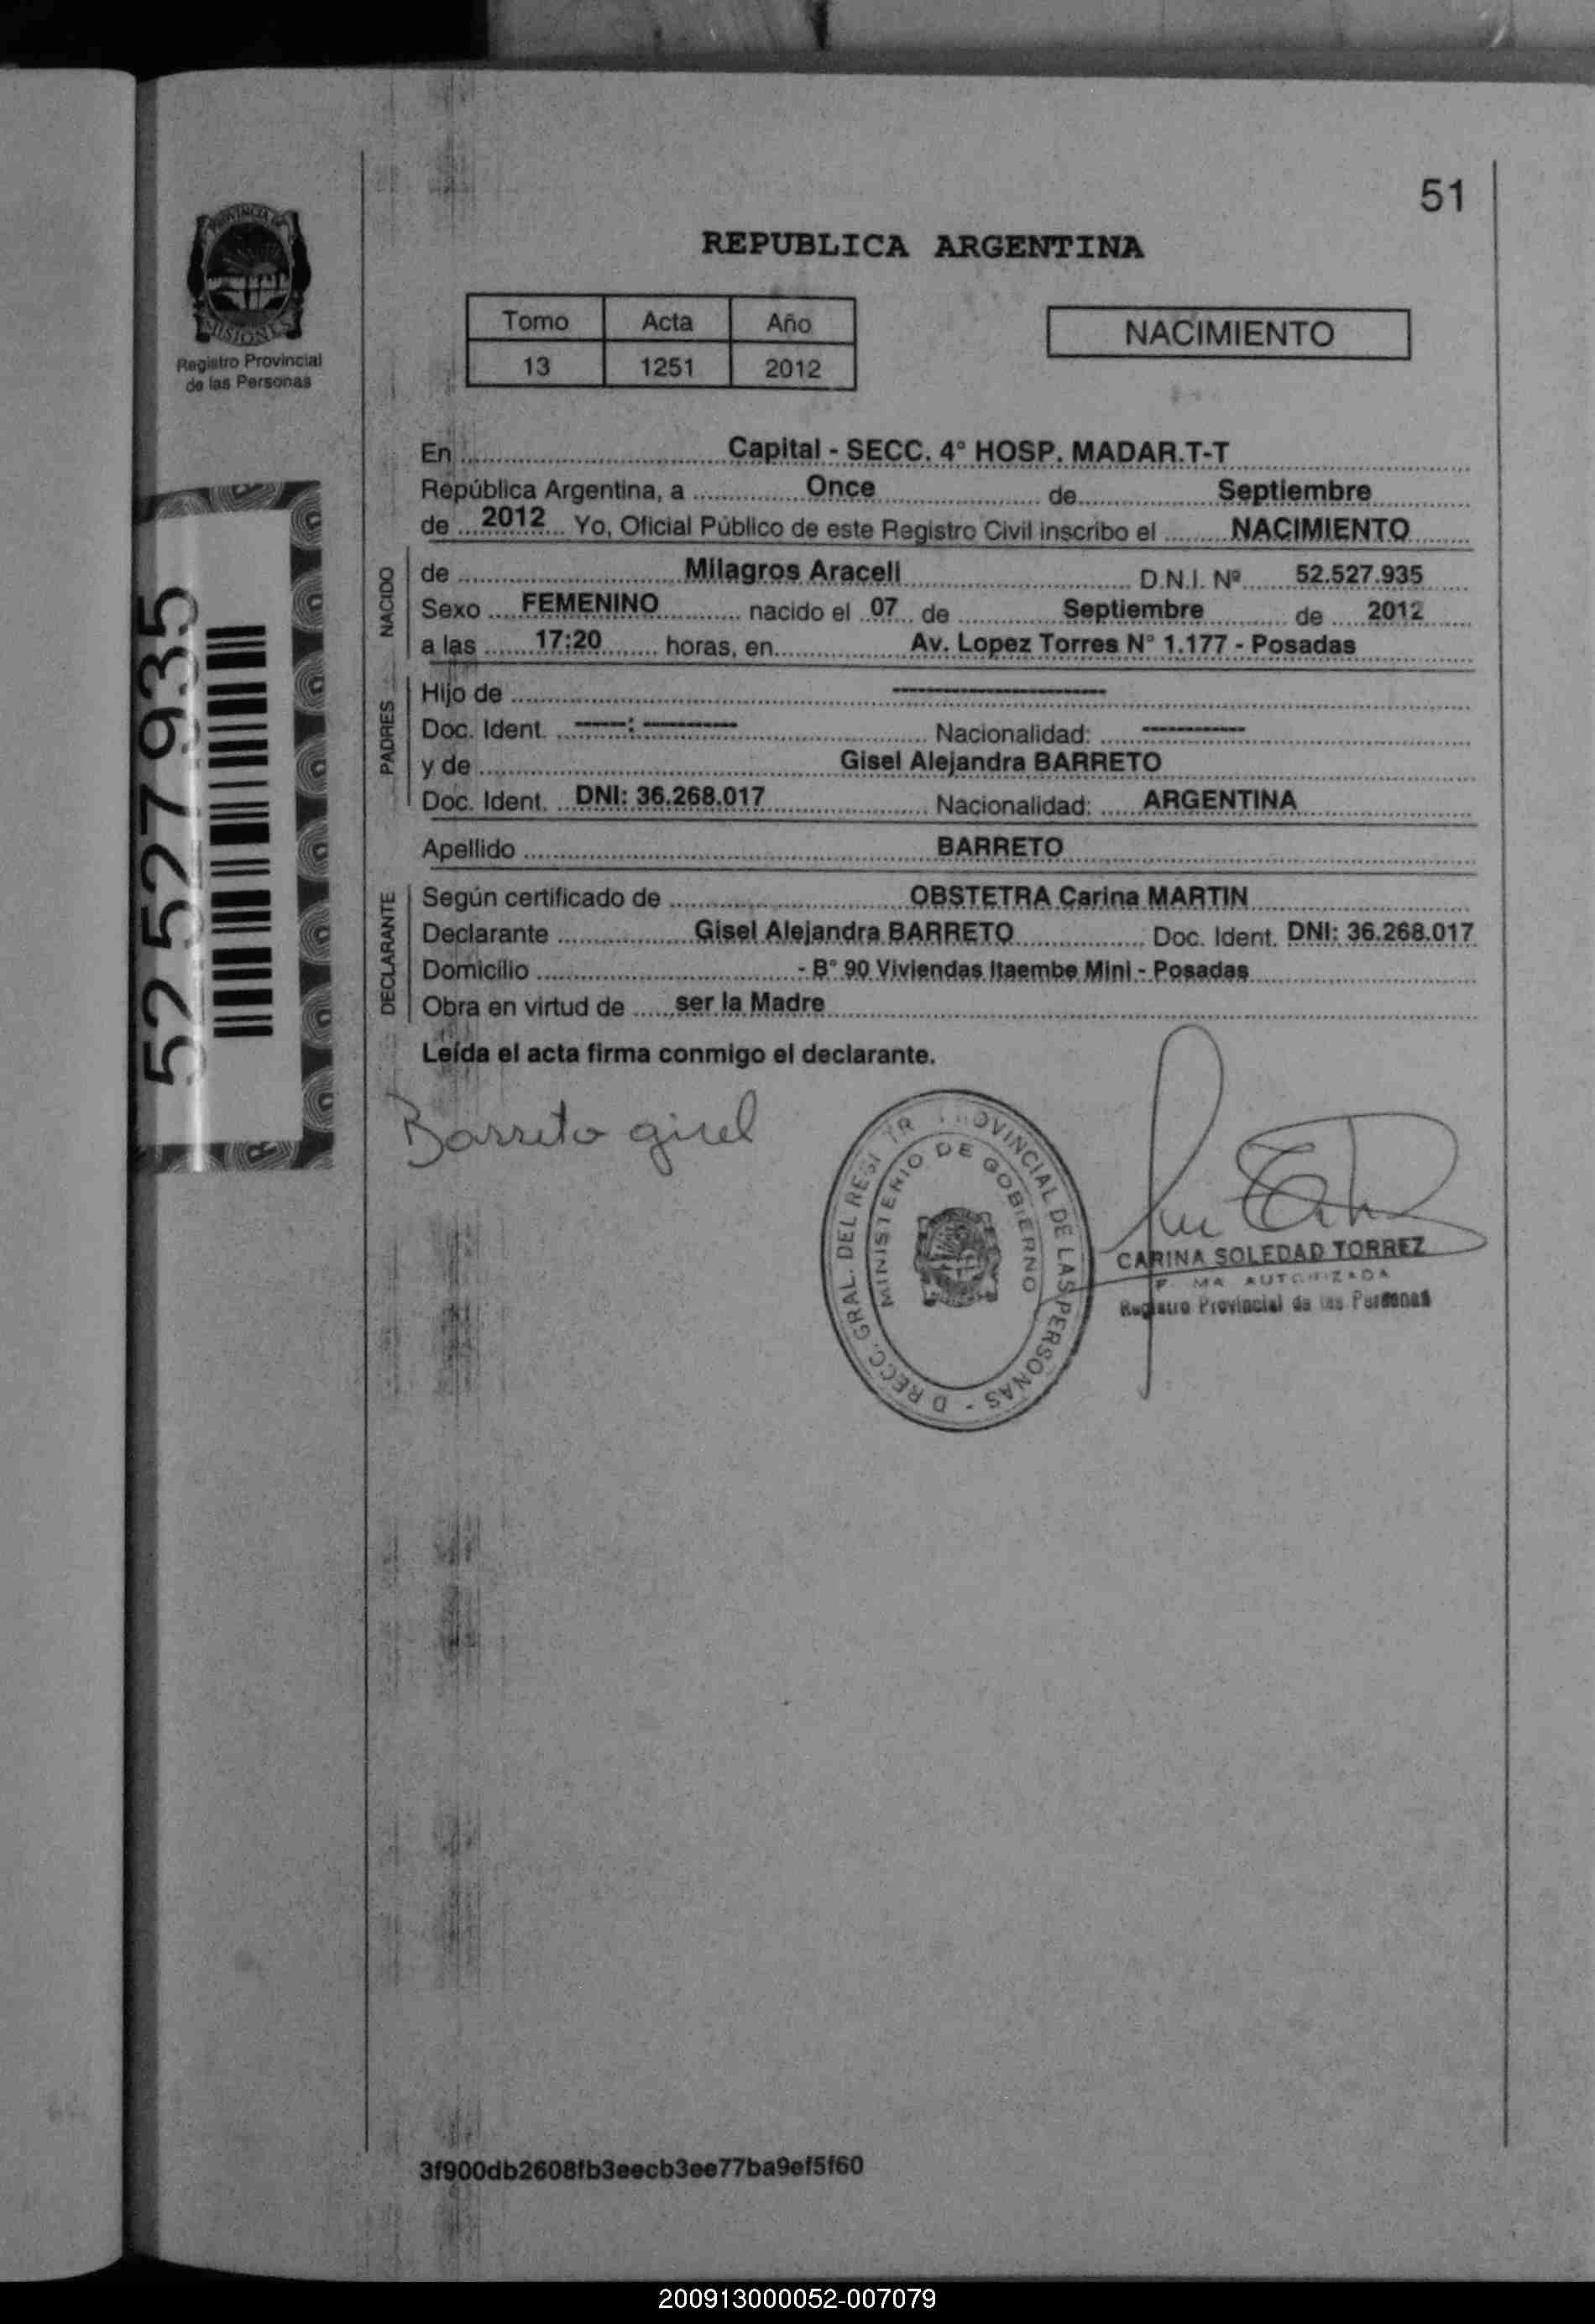 51
PROVINCIA DE
MISIONES
Registro Provincial
de las Personas
REPUBLICA ARGENTINA
Tomo Acta Año
13 1251 2012
NACIMIENTO
En Capital - SECC. 4° HOSP. MADAR.T-T
República Argentina, a Once de Septiembre
de 2012 Yo, Oficial Público de este Registro Civil inscribo el NACIMIENTO
NACIDO
de Milagros Araceli D.N.I. Nº 52.527.935
Sexo FEMENINO nacido el 07 de Septiembre de 2012
a las 17:20 horas, en Av. Lopez Torres N° 1.177 - Posadas
PADRES
Hijo de --------------------
Doc. Ident. -----: --------- Nacionalidad: ----------
y de Gisel Alejandra BARRETO
Doc. Ident. DNI: 36.268.017 Nacionalidad: ARGENTINA
Apellido BARRETO
DECLARANTE
Según certificado de OBSTETRA Carina MARTIN
Declarante Gisel Alejandra BARRETO Doc. Ident. DNI: 36.268.017
Domicilio - B° 90 Viviendas Itaembe Mini - Posadas
Obra en virtud de ser la Madre
Leída el acta firma conmigo el declarante.
52527935
Barreto gisel
PROVINCIAL DE LAS PERSONAS - D RECC. GRAL. DEL
MINISTERIO DE GOBIERNO
CARINA SOLEDAD TORREZ
AUTORIZADA
Registro Provincial de las Personas
3f900db2608fb3eecb3ee77ba9ef5f60
200913000052-007079